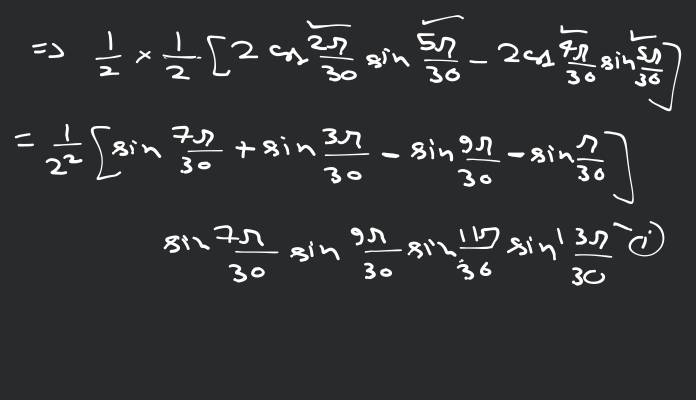 ⇒ 1/2 × 1/2 [2 cos 2π/30 sin 5π/30 - 2cos 4π/30 sin 5π/30]
= 1/2² [sin 7π/30 + sin 3π/30 - sin 9π/30 - sin π/30]
sin 7π/30 sin 9π/30 sin 11π/30 sin 13π/30 - (i)